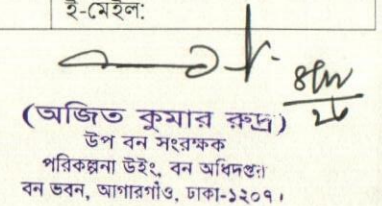 ই-মেইল:
(অজিত কুমার রুদ্র)
উপ বন সংরক্ষক
পরিকল্পনা উইং, বন অধিদপ্তর
বন ভবন, আগারগাঁও, ঢাকা-১২০৭।